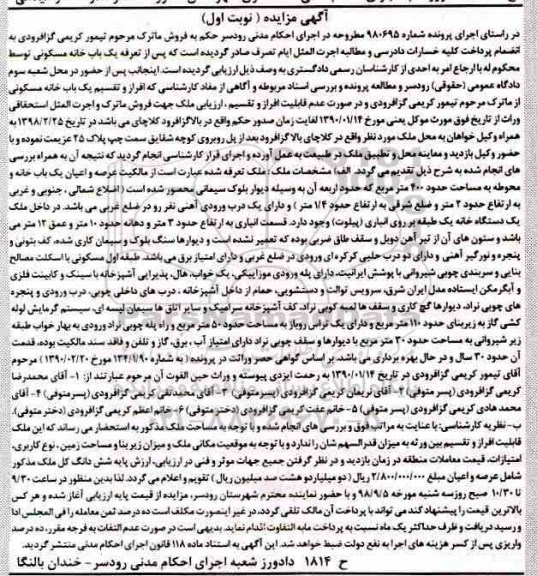 آگهی مزایده ( نوبت اول)
در راستای اجرای پرونده شماره ۹۸۰۶۹۵ مطروحه در اجرای احکام مدنی رودسر حکم به فروش ماترک مرحوم تیمور کریمی گزافرودی به
انضمام پرداخت کلیه خسارات دادرسی و مطالبه اجرت المثل ایام تصرف صادر گردیده است که پس از تعرفه یک باب خانه مسکونی توسط
محکوم له با ارجاع امر به احدی از کارشناسان رسمی دادگستری به وصف ذیل ارزیابی گردیده است. اینجانب پس از حضور در محل شعبه سوم
دادگاه عمومی (حقوقی) رودسر و مطالعه پرونده و بررسی اسناد مربوطه و آگاهی از مفاد کارشناسی که افراز و تقسیم یک باب خانه مسکونی
از ماترک مرحوم تیمور کریمی گزافرودی و در صورت عدم قابلیت افراز و تقسیم ، ارزیابی ملک جهت فروش ماترک و اجرت المثل استحقاقی
وراث از تاریخ فوق مورث موکل یعنی مورخ ۱۳۹۰/۰۱/۱۴ لغایت زمان صدور حکم واقع در بالاگزافرود کلاچای می باشد در تاریخ ۱۳۹۸/۲/۲۵
همراه وکیل خواهان به محل ملک مورد نظر واقع در کلاچای بالا گزافرود بعد از پل روبروی کوچه شقایق سمت چپ پلاک ۲۵ عزیمت نموده و با
حضور وکیل بازدید و معاینه محل و تطبیق ملک در طبیعت به عمل آورده و اجرای قرار کارشناسی انجام گردید که نتیجه آن به همراه بررسی
های انجام شده به شرح ذیل تقدیم می گردد. الف) مشخصات ملک: ملک تعرفه شده عبارت است از مالکیت عرصه و اعیان یک باب خانه و
محوطه به مساحت حدود ۴۰۰ متر مربع که حدود اربعه آن به وسیله دیوار بلوک سیمانی محصور شده است ( اضلاع شمالی ، جنوبی و غربی
به ارتفاع حدود ۲ متر و ضلع شرقی به ارتفاع حدود ۱/۴ متر ) و دارای یک درب ورودی آهنی نفر رو در ضلع غربی می باشد. در داخل ملک
یک دستگاه خانه یک طبقه بر روی انباری (پیلوت) وجود دارد. قسمت انباری به ارتفاع حدود ۳ متر و دهانه حدود ۱۰ متر و عمق ۱۲ متر می
باشد و ستون های آن از تیر آهن دوبل و سقف طاق ضربی بوده که تعمیر نشده است و دیوارها سنگ بلوک و سیمان کاری شده، کف بتونی و
پنجره و نورگیر آهنی و دارای دو درب حلبی کرکره ای ورودی در ضلع غربی و دارای امتیاز برق می باشد. طبقه اول مسکونی با اسکلت مصالح
بنایی و سربندی چوبی شیروانی با پوشش ایرانیت، دارای پله ورودی موزاییکی، یک خواب، هال، پذیرایی آشپزخانه با سینک و کابینت فلزی
و آبگرمکن ایستاده مدل ایران شرق، سرویس توالت و دستشویی، حمام از داخل آشپزخانه ، درب های داخلی چوبی، درب ورودی و پنجره
های چوبی نراد، دیوارها گچ کاری و سقف ها لمبه کوبی نراد، کف آشپزخانه موزاییک و سایر اتاق ها سیمان لیسه ای، سیستم گرمایش لوله
کشی گاز به زیربنای حدود ۱۱۰ متر مربع و دارای یک تراس روباز به مساحت حدود ۵۰ متر مربع و راه پله چوبی نراد ورودی به بهار خواب طبقه
زیر شیروانی به مساحت حدود ۳۰ متر مربع با دیوارها و سقف چوبی نراد دارای امتیاز آب ، برق، گاز و تلفن و فاقد سند مالکیت بوده، قدمت
آن حدود ۳۰ سال و در حال بهره برداری می باشد. بر اساس گواهی حصر وراثت در پرونده ( به شماره ۱۳۴/۱/۹۰ مورخ ۱۳۹۰/۰۲/۲۰ ) مرحوم
آقای تیمور کریمی گزافرودی در تاریخ ۱۳۹۰/۰۱/۱۴ به رحمت ایزدی پیوسته و وراث حین الفوت آن مرحوم عبارتند از: ۱- آقای محمدرضا
کریمی گزافرودی (پسر متوفی) ۲- آقای نریمان کریمی گزافرودی (پسر متوفی) ۳- آقای محمدتقی کریمی گزافرودی (پسرمتوفی) ۴- آقای
محمد هادی کریمی گزافرودی (پسر متوفی) ۵- خانم عفت کریمی گزافرودی (دختر متوفی) ۶- خانم اعظم کریمی گزافرودی (دختر متوفی).
ب- نظریه کارشناسی: با عنایت به مراتب فوق و بررسی های انجام شده و با توجه به مساحت ملک مذکور به استحضار می رساند که این ملک
قابلیت افراز و تقسیم بین ورثه به میزان قدرالسهم شان را ندارد و با توجه به موقعیت مکانی ملک و میزان زیربنا و مساحت زمین، نوع کاربری،
امتیازات، قیمت معاملات منطقه در زمان بازدید و در نظر گرفتن جمیع جهات موثر و فنی در ارزیابی، ارزش پایه شش دانگ کل ملک مذکور
شامل عرصه و اعیان مبلغ ۲/۸۰۰/۰۰۰/۰۰۰ ریال (دو میلیارد و هشت صد میلیون ریال) تقویم و اعلام می گردد. لذا بدین منظور در ساعت ۹/۳۰
تا ۱۰/۳۰ صبح روزسه شنبه مورخه ۹۸/۹/۵ و با حضور نماینده محترم شهرستان رودسر، مزایده از قیمت پایه ارزیابی آغاز شده و هر کس
بالاترین قیمت را پیشنهاد کند می تواند با پرداخت آن مالک تلقی گردد، در غیر اینصورت مکلف است ده درصد ثمن معامله را فی المجلس ادا
و رسید دریافت و ظرف حداکثر یک ماه نسبت به پرداخت مابه التفاوت اقدام نماید. بدیهی است در صورت عدم التفات به فرجه مقرر، ده درصد
واریزی پس از کسر هزینه های اجرا به نفع دولت ضبط خواهد شد. این آگهی به استناد ماده ۱۱۸ قانون اجرای احکام مدنی منتشر گردید.
ح ۱۸۱۴ دادورز شعبه اجرای احکام مدنی رودسر - خندان بالنگا